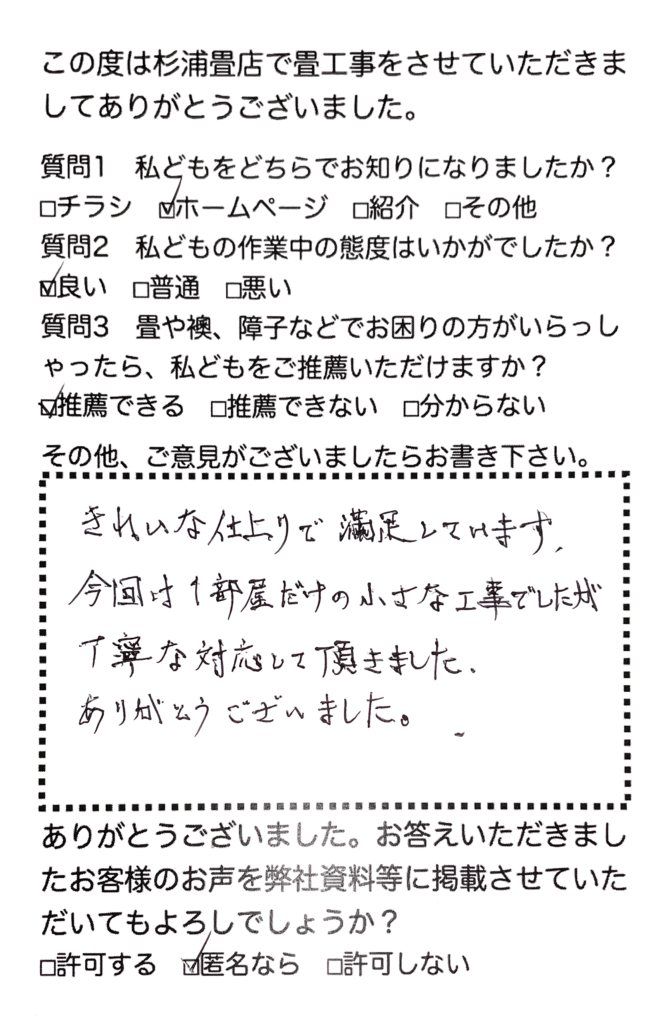 この度は杉浦畳店で畳工事をさせていただきま
してありがとうございました。
質問1　私どもをどちらでお知りになりましたか？
□チラシ　☑ホームページ　□紹介　□その他
質問2　私どもの作業中の態度はいかがでしたか？
☑良い　□普通　□悪い
質問3　畳や襖、障子などでお困りの方がいらっし
ゃったら、私どもをご推薦いただけますか？
☑推薦できる　□推薦できない　□分からない
その他、ご意見がございましたらお書き下さい。
きれいな仕上りで満足しています、
今回は1部屋だけの小さな工事でしたが
丁寧な対応して頂きました、
ありがとうございました。
ありがとうございました。お答えいただきまし
たお客様のお声を弊社資料等に掲載させていた
だいてもよろしでしょうか？
□許可する　☑匿名なら　□許可しない